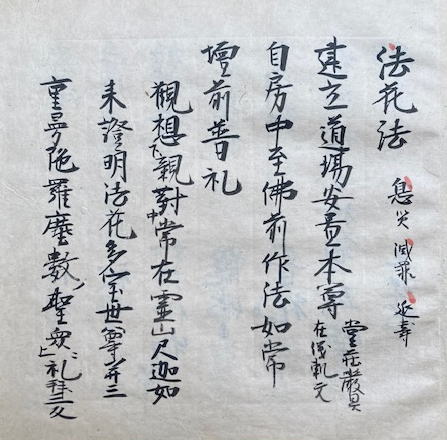 法花法 息災 滅罪 延壽
建立道場安置本尊 堂莊嚴具
在儀軌文
自房中至佛前作法如常
壇前普礼
觀想下親對中常在靈山尺迦如
来證明法花多宝世尊并三
重曼陀羅塵數聖衆上礼拜三反